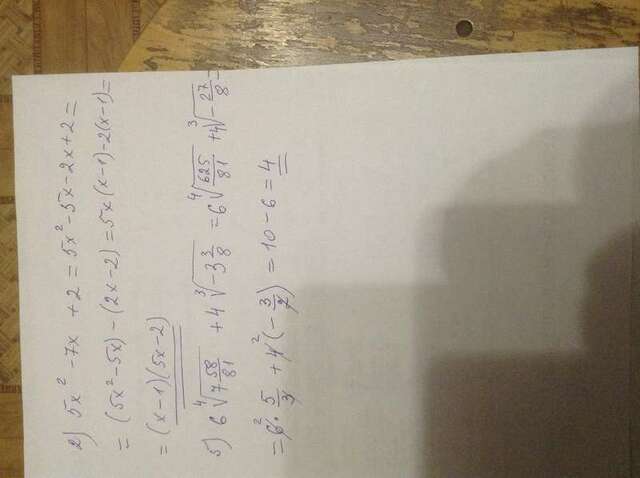 2) 5x² - 7x + 2 = 5x² - 5x - 2x + 2 =
= (5x² - 5x) - (2x - 2) = 5x(x - 1) - 2(x - 1) =
= (x - 1)(5x - 2)
5) 6 ⁴√(7 58/81) + 4 ³√(-3 3/8) = 6 ⁴√(625/81) + 4 ³√(-27/8) =
= 6² · 5/3 + 4² (-3/2) = 10 - 6 = 4